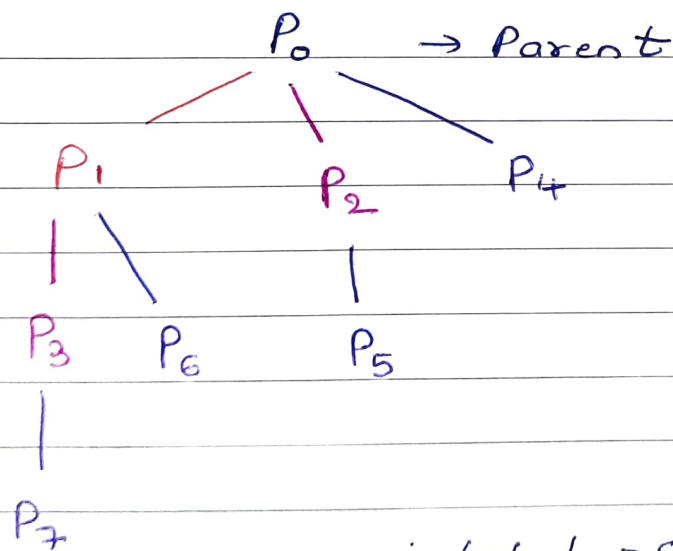 P₀ → Parent
P₁ P₂ P₄
P₃ P₆ P₅
P₇